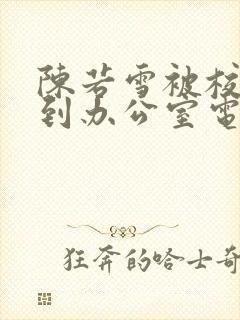 陳若雪被校
到办公室電
狂奔的哈士奇